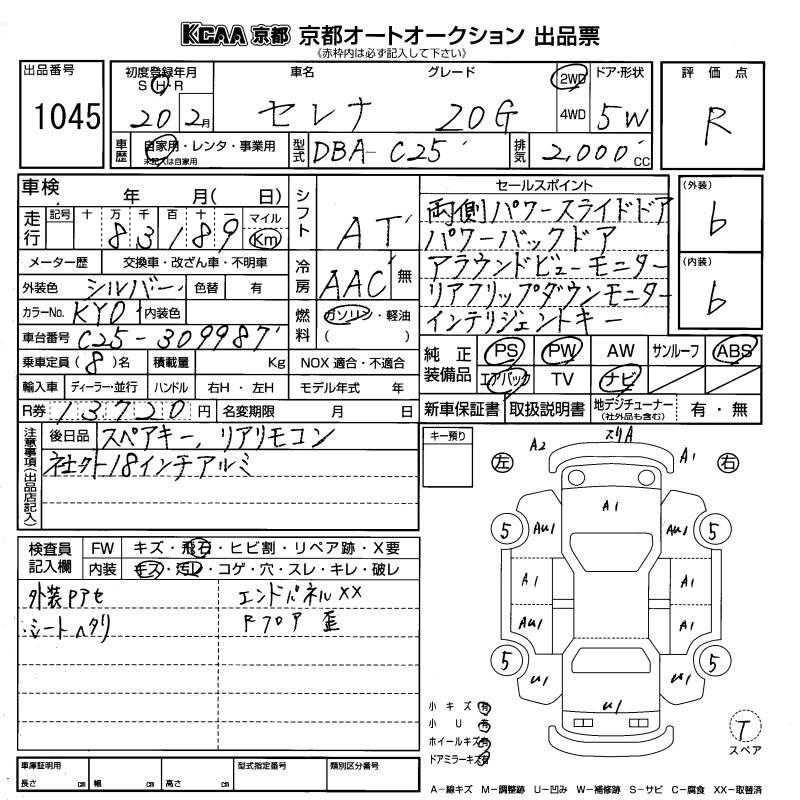 KCAA 京都 京都オートオークション 出品票
《赤枠内は必ず記入して下さい》
出品番号
1045
初度登録年月
S・H・R
20 2月
車名
セレナ
グレード
20G
2WD
4WD
ドア・形状
5W
評価点
R
車歴
自家用・レンタ・事業用
未記入は自家用
型式
DBA-C25
排気
2,000 CC
車検 年 月( 日)
走行
記号 十 万 千 百 十 一 マイル
8 3 1 8 9 Km
メーター歴 交換車・改ざん車・不明車
外装色 シルバー 色替 有
カラーNo. KY0 内装色
車台番号 C25-309987
乗車定員(8)名 積載量 Kg
輸入車 ディーラー・並行 ハンドル 右H・左H
R券 13720円 名変期限 月 日
シフト
AT
冷房
AAC 無
燃料
ガソリン・軽油
( )
NOX 適合・不適合
モデル年式 年
セールスポイント
両側パワースライドドア
パワーバックドア
アラウンドビューモニター
リアフリップダウンモニター
インテリジェントキー
(外装)
6
(内装)
6
純正装備品
PS PW AW サンルーフ ABS
エアバック TV ナビ
新車保証書 取扱説明書 地デジチューナー(社外品も含む) 有・無
注意事項(出品店記入)
後日品 スペアキー, リアリモコン
社外18インチアルミ
キー預り
検査員記入欄
FW キズ・飛石・ヒビ割・リペア跡・X要
内装 キズ・汚レ・コゲ・穴・スレ・キレ・破レ
外装Pアセ
シートヘタリ
エンドパネルXX
Rフロア 歪
左
右
A2
スリA
A1
A1
5
AU1
AU1
5
A1
A1
AU1
A1
5
U1
U1
U1
5
小キズ 有
小U 有
ホイールキズ 有
ドアミラーキズ 有
T
スペア
車庫証明用
長さ cm 幅 cm 高さ cm
型式指定番号
類別区分番号
A-線キズ M-調整跡 U-凹み W-補修跡 S-サビ C-腐食 XX-取替済